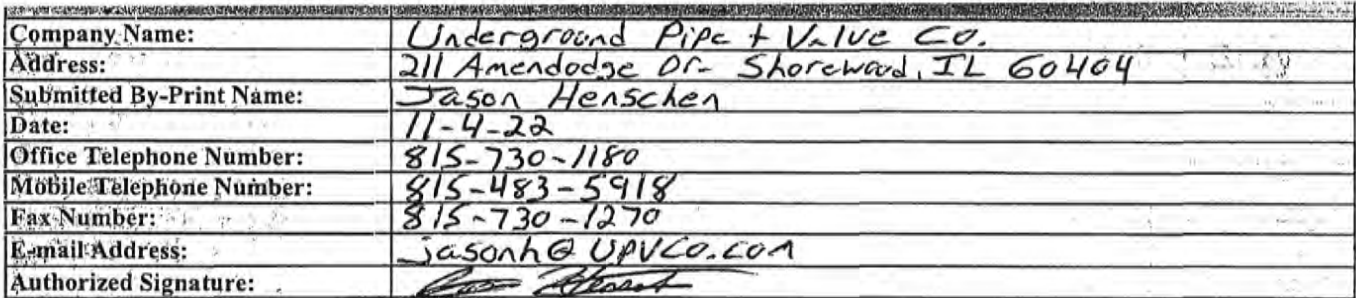 Company Name: Underground Pipe + Valve Co.
Address: 211 Amendodge Dr- Shorewood, IL 60404
Submitted By-Print Name: Jason Henschen
Date: 11-4-22
Office Telephone Number: 815-730-1180
Mobile Telephone Number: 815-483-5918
Fax Number: 815-730-1270
E-mail Address: jasonh@UPVCO.COM
Authorized Signature: